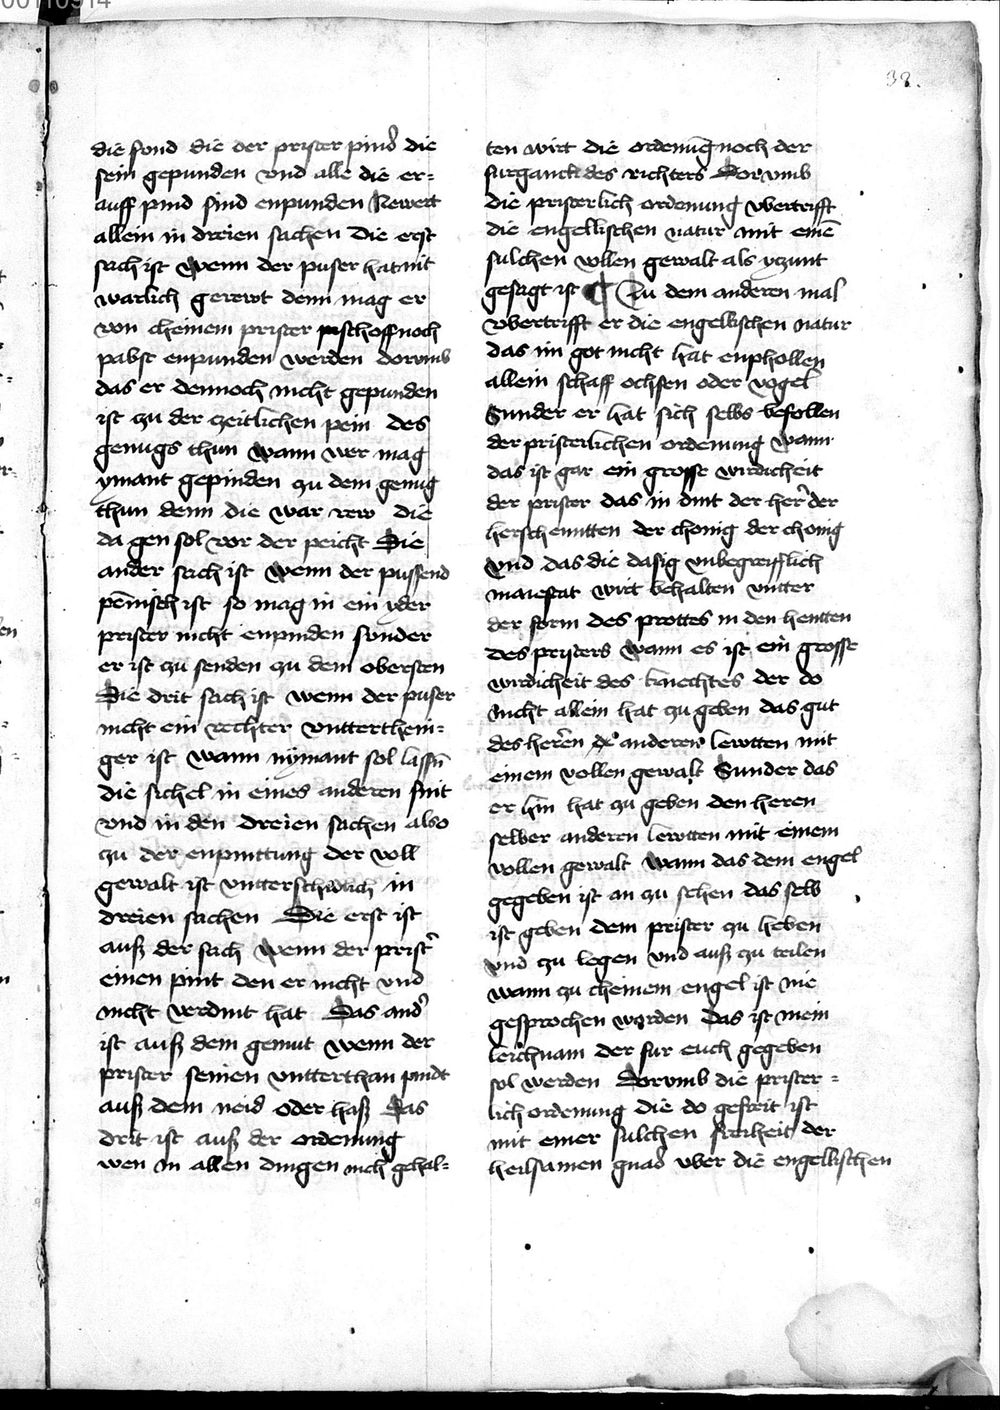 38.
die sond die der prister pind᷑ die
sein gepunden vnd alle die er=
auff pind sind enpunden Newert
allein in dreien sachen Die erst
sach ist Wenn der puser hat nit
warlich gerewt denn mag er
von cheinem prister pischoff noch
pabst enpunden werden dorvmb
das er dennoch nicht gepunden
ist zu der zeitlichen pein des
genugs thun Wann wer mag
ymant gepinden zu dem genug
thun denn die war rew die
da gen sol vor der peicht Die
ander sach ist Wenn der pussend
pēnisch ist so mag in ein yder
prister nicht enpinden sunder
er ist zu senden zu dem obersten
Die drit sach ist wenn der puser
nicht ein rechter vnttertheni=
ger ist wann nymant sol lassn̄
die sichel in eines anderen snit
vnd in den dreien sachen also
zu der enpinttung der voll
gewalt ist vnterschidlich in
dreien sachen Die erst ist
auß der sach Wenn der prist᷑
einen pint den er nicht vnd
nicht verdint hat Das and᷑
ist auß dem gemut wenn der
prister seinen vnterthan pindt
auß dem neid oder haß Das
drit ist auß der ordenung
wen in allen dingen nich gehal=
ten wirt die ordenūg noch der
furganck des richters Dorvmb
die pristerlich ordenung vbertrifft
die engellischen natur mit einē
sulchen vollen gewalt als yczunt
gesagt ist ¶ Zu dem anderen mal
vbertrifft er die engellischen natur
das im got nicht hat enphollen
allein schaff ochsen oder vogel
Sunder er hat sich selbs befollen
der pristerlichen ordenung Wann
das ist gar ein grosse wirdicheit
der prister das in dint der her᷑ der
herschenntten der chonig der chonig
Vnd das die dasig vnbegreifflich
maiestat wirt behalten vntter
der form des prottes in den hentten
des pristers Wann es ist ein grosse
wirdicheit des knechtes der do
nicht allein hat zu geben das gut
des heren anderen lewtten mit
einem vollen gewalt Sunder das
er hin hat zu geben den heren
selber anderen lewtten mit einem
vollen gewalt Wann das dem engel
gegeben ist an zu sehen das selb
ist geben dem prister zu heben
vnd zu legen vnd auß zu teilen
wann zu cheinem engel ist nie
gesprochen worden Das ist mein
leichnam der fur euch gegeben
sol werden Dorvmb die prister=
lich ordenung die do gefreit ist
mit einer sulchen freiheit der
heilsamen gnad vber die engellischen